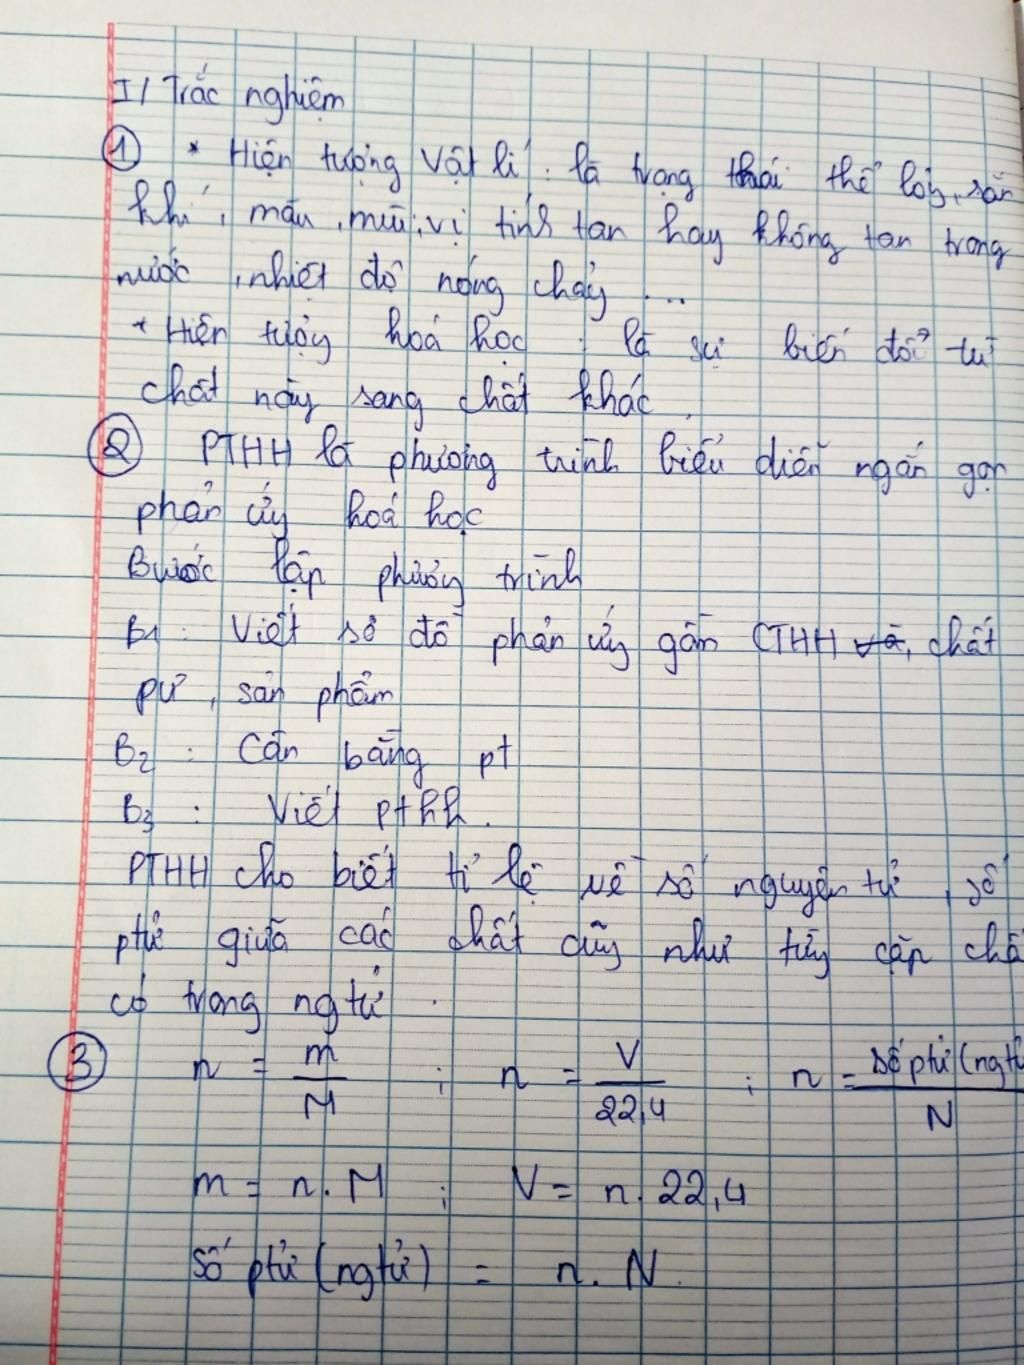 I/ Trắc nghiệm
① * Hiện tượng vật lí : là trạng thái thể lỏng, rắn
khí, màu, mùi, vị tính tan hay không tan trong
nước, nhiệt độ nóng chảy ...
* Hiện tượng hoá học : là sự biến đổi từ
chất này sang chất khác.
② PTHH là phương trình biểu diễn ngắn gọn
phản ứng hoá học
Bước lập phương trình
B1 : Viết sơ đồ phản ứng gồm CTHH và, chất
pư, sản phẩm
B2 : Cân bằng pt
B3 : Viết pthh.
PTHH cho biết tỉ lệ về số nguyên tử, số
ptử giữa các chất cũng như từng cặp chấ
có trong ngtử.
③ n = m/M ; n = V/22,4 ; n = số ptử (ngtử/N
m = n.M ; V = n.22,4
Số ptử (ngtử) = n.N.